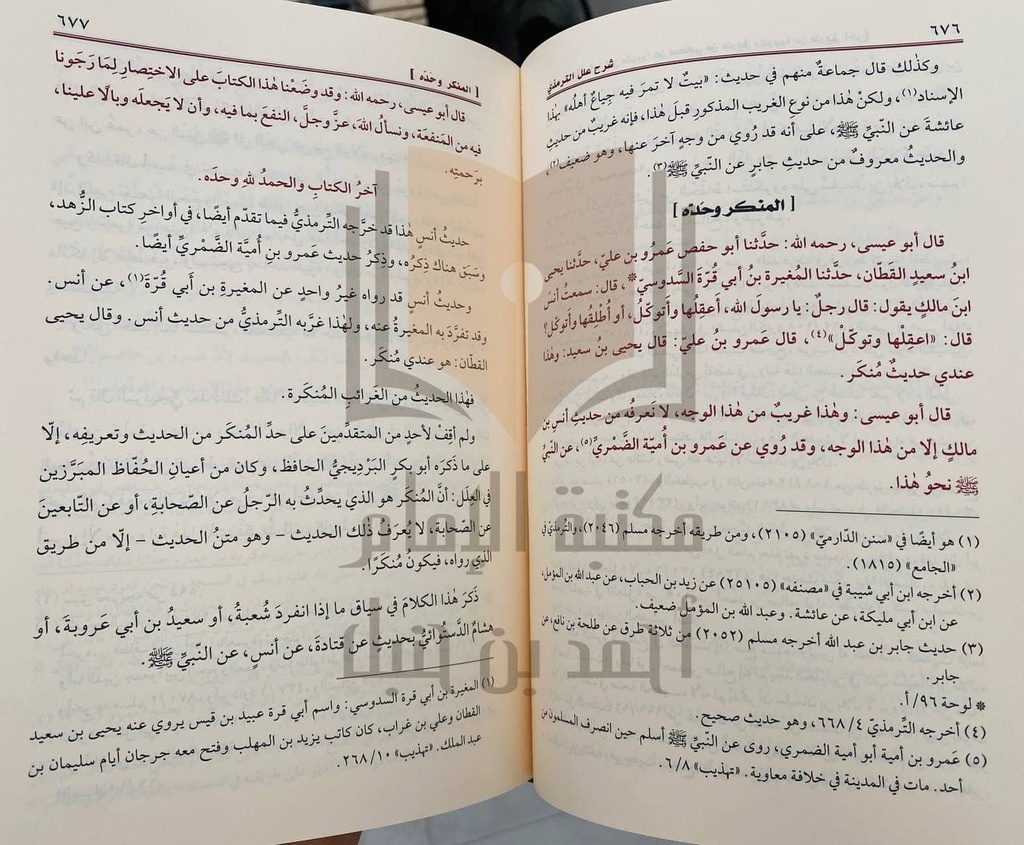 ٦٧٦
شرح علل الترمذي
وكذلك قال جماعةٌ منهم في حديث: «بيتٌ لا تمرَ فيه جِياعٌ أهلُه» بهذا
الإسناد(١)، ولكنْ هٰذا من نوعِ الغريب المذكورِ قبلَ هٰذا، فإنه غريبٌ من حديثِ
عائشةَ عن النبيِّ ﷺ، على أنه قد رُوي من وجهٍ آخرَ عنها، وهو ضعيف(٢)،
والحديثُ معروفٌ من حديثِ جابرٍ عن النبيِّ ﷺ(٣).
[ المنكر وحدّه ]
قال أبو عيسى، رحمه الله: حدَّثنا أبو حفصٍ عَمرُو بن عليّ، حدَّثنا يحيى
ابنُ سعيدٍ القَطّان، حدَّثنا المُغيرةُ بنُ أبي قُرّةَ السَّدوسيّ*، قال: سمعتُ أنسَ
ابنَ مالكٍ يقول: قال رجلٌ: يا رسولَ الله، أَعقِلُها وأتوكّلُ، أو أُطْلِقُها وأَتوكّل؟
قال: «اعقِلْها وتوكّلْ»(٤)، قال عَمرو بنُ عليّ: قال يحيى بنُ سعيد: وهٰذا
عندي حديثٌ مُنكَر.
قال أبو عيسى: وهٰذا غريبٌ من هٰذا الوجه، لا نَعرفُه من حديثِ أنسِ بن
مالكٍ إلّا من هٰذا الوجه، وقد رُوي عن عَمرو بن أُميّة الضَّمْريِّ(٥)، عن النبيِّ
ﷺ نحوُ هٰذا.
(١) هو أيضًا في «سنن الدّارميّ» (٢١٠٥)، ومن طريقه أخرجه مسلم (٢٠٤٦)، والتِّرمذيّ في
«الجامع» (١٨١٥).
(٢) أخرجه ابن أبي شيبة في «مصنفه» (٢٥١٠٥) عن زيد بن الحباب، عن عبد الله بن المؤمل،
عن ابن أبي مليكة، عن عائشة. وعبد الله بن المؤمل ضعيف.
(٣) حديث جابر بن عبد الله أخرجه مسلم (٢٠٥٢) من ثلاثة طرق عن طلحة بن نافع، عن
جابر.
* لوحة ٩٦/أ.
(٤) أخرجه التِّرمذيّ ٤/ ٦٦٨، وهو حديث صحيح.
(٥) عَمرو بن أمية أبو أمية الضمري، روى عن النبيِّ ﷺ أسلم حين انصرف المسلمون من
أحد. مات في المدينة في خلافة معاوية. «تهذيب» ٨/ ٦.
٦٧٧
[ المنكر وحدّه ]
قال أبو عيسى، رحمه الله: وقد وضَعْنا هٰذا الكتابَ على الاختِصارِ لِمَا رَجَونا
فيه من المَنفعَة، ونسألُ اللهَ، عزَّ وجلَّ، النفعَ بما فيه، وأن لا يَجعلَه وبالًا علينا،
برَحمتِه.
آخرُ الكتابِ والحمدُ للهِ وحدَه.
حديثُ أنسٍ هٰذا قد خرَّجه التِّرمذيُّ فيما تقدّم أيضًا، في أواخرِ كتاب الزُّهد،
وسَبَق هناك ذِكرُه، وذِكرُ حديث عَمرِو بن أُميَّة الضَّمْريِّ أيضًا.
وحديثُ أنسٍ قد رواه غيرُ واحدٍ عن المغيرةِ بن أبي قُرّةَ(١)، عن أنس.
وقد تفرَّدَ به المغيرةُ عنه، ولهٰذا غرَّبه التِّرمذيُّ من حديث أنس. وقال يحيى
القطّان: هو عندي مُنكَر.
فهٰذا الحديثُ من الغَرائبِ المُنكَرة.
ولم أقِفْ لأحدٍ من المتقدِّمينَ على حدِّ المُنكَر من الحديث وتعريفِه، إلّا
على ما ذكَرَه أبو بكرٍ البَرْدِيجيُّ الحافظ، وكان من أعيانِ الحُفّاظ المبَرَّزين
في العِلَل: أنَّ المُنكَر هو الذي يحدِّثُ به الرّجلُ عن الصّحابةِ، أو عن التّابعينَ
عن الصّحابة، لا يُعرَفُ ذٰلك الحديث - وهو متنُ الحديث - إلّا من طريق
الذي رواه، فيكونُ مُنكَرًا.
ذَكَرَ هٰذا الكلامَ في سياق ما إذا انفردَ شُعبةُ، أو سعيدُ بن أبي عَروبةَ، أو
هشامٌ الدَّستوائيُّ بحديثٍ عن قتادةَ، عن أنسٍ، عن النبيِّ ﷺ.
(١) المغيرة بن أبي قرة السدوسي: واسم أبي قرة عبيد بن قيس يروي عنه يحيى بن سعيد
القطان وعلي بن غراب، كان كاتب يزيد بن المهلب وفتح معه جرجان أيام سليمان بن
عبد الملك. «تهذيب» ١٠/ ٢٦٨.
مكتبة الإمام
أحمد بن حنبل